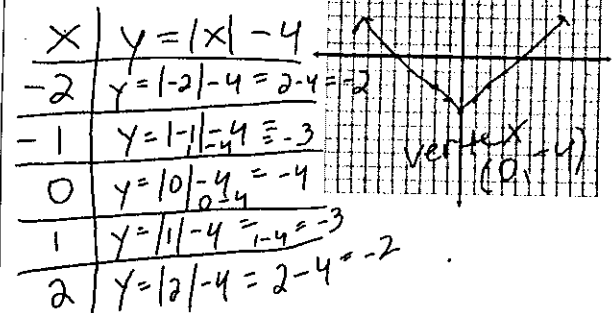 x | y = |x| - 4
-2 | y = |-2| - 4 = 2-4 = -2
-1 | y = |-1| - 4 = -3
1-4
0 | y = |0| - 4 = -4
0-4
1 | y = |1| - 4 = 1-4 = -3
2 | y = |2| - 4 = 2 - 4 = -2
vertex
(0, -4)